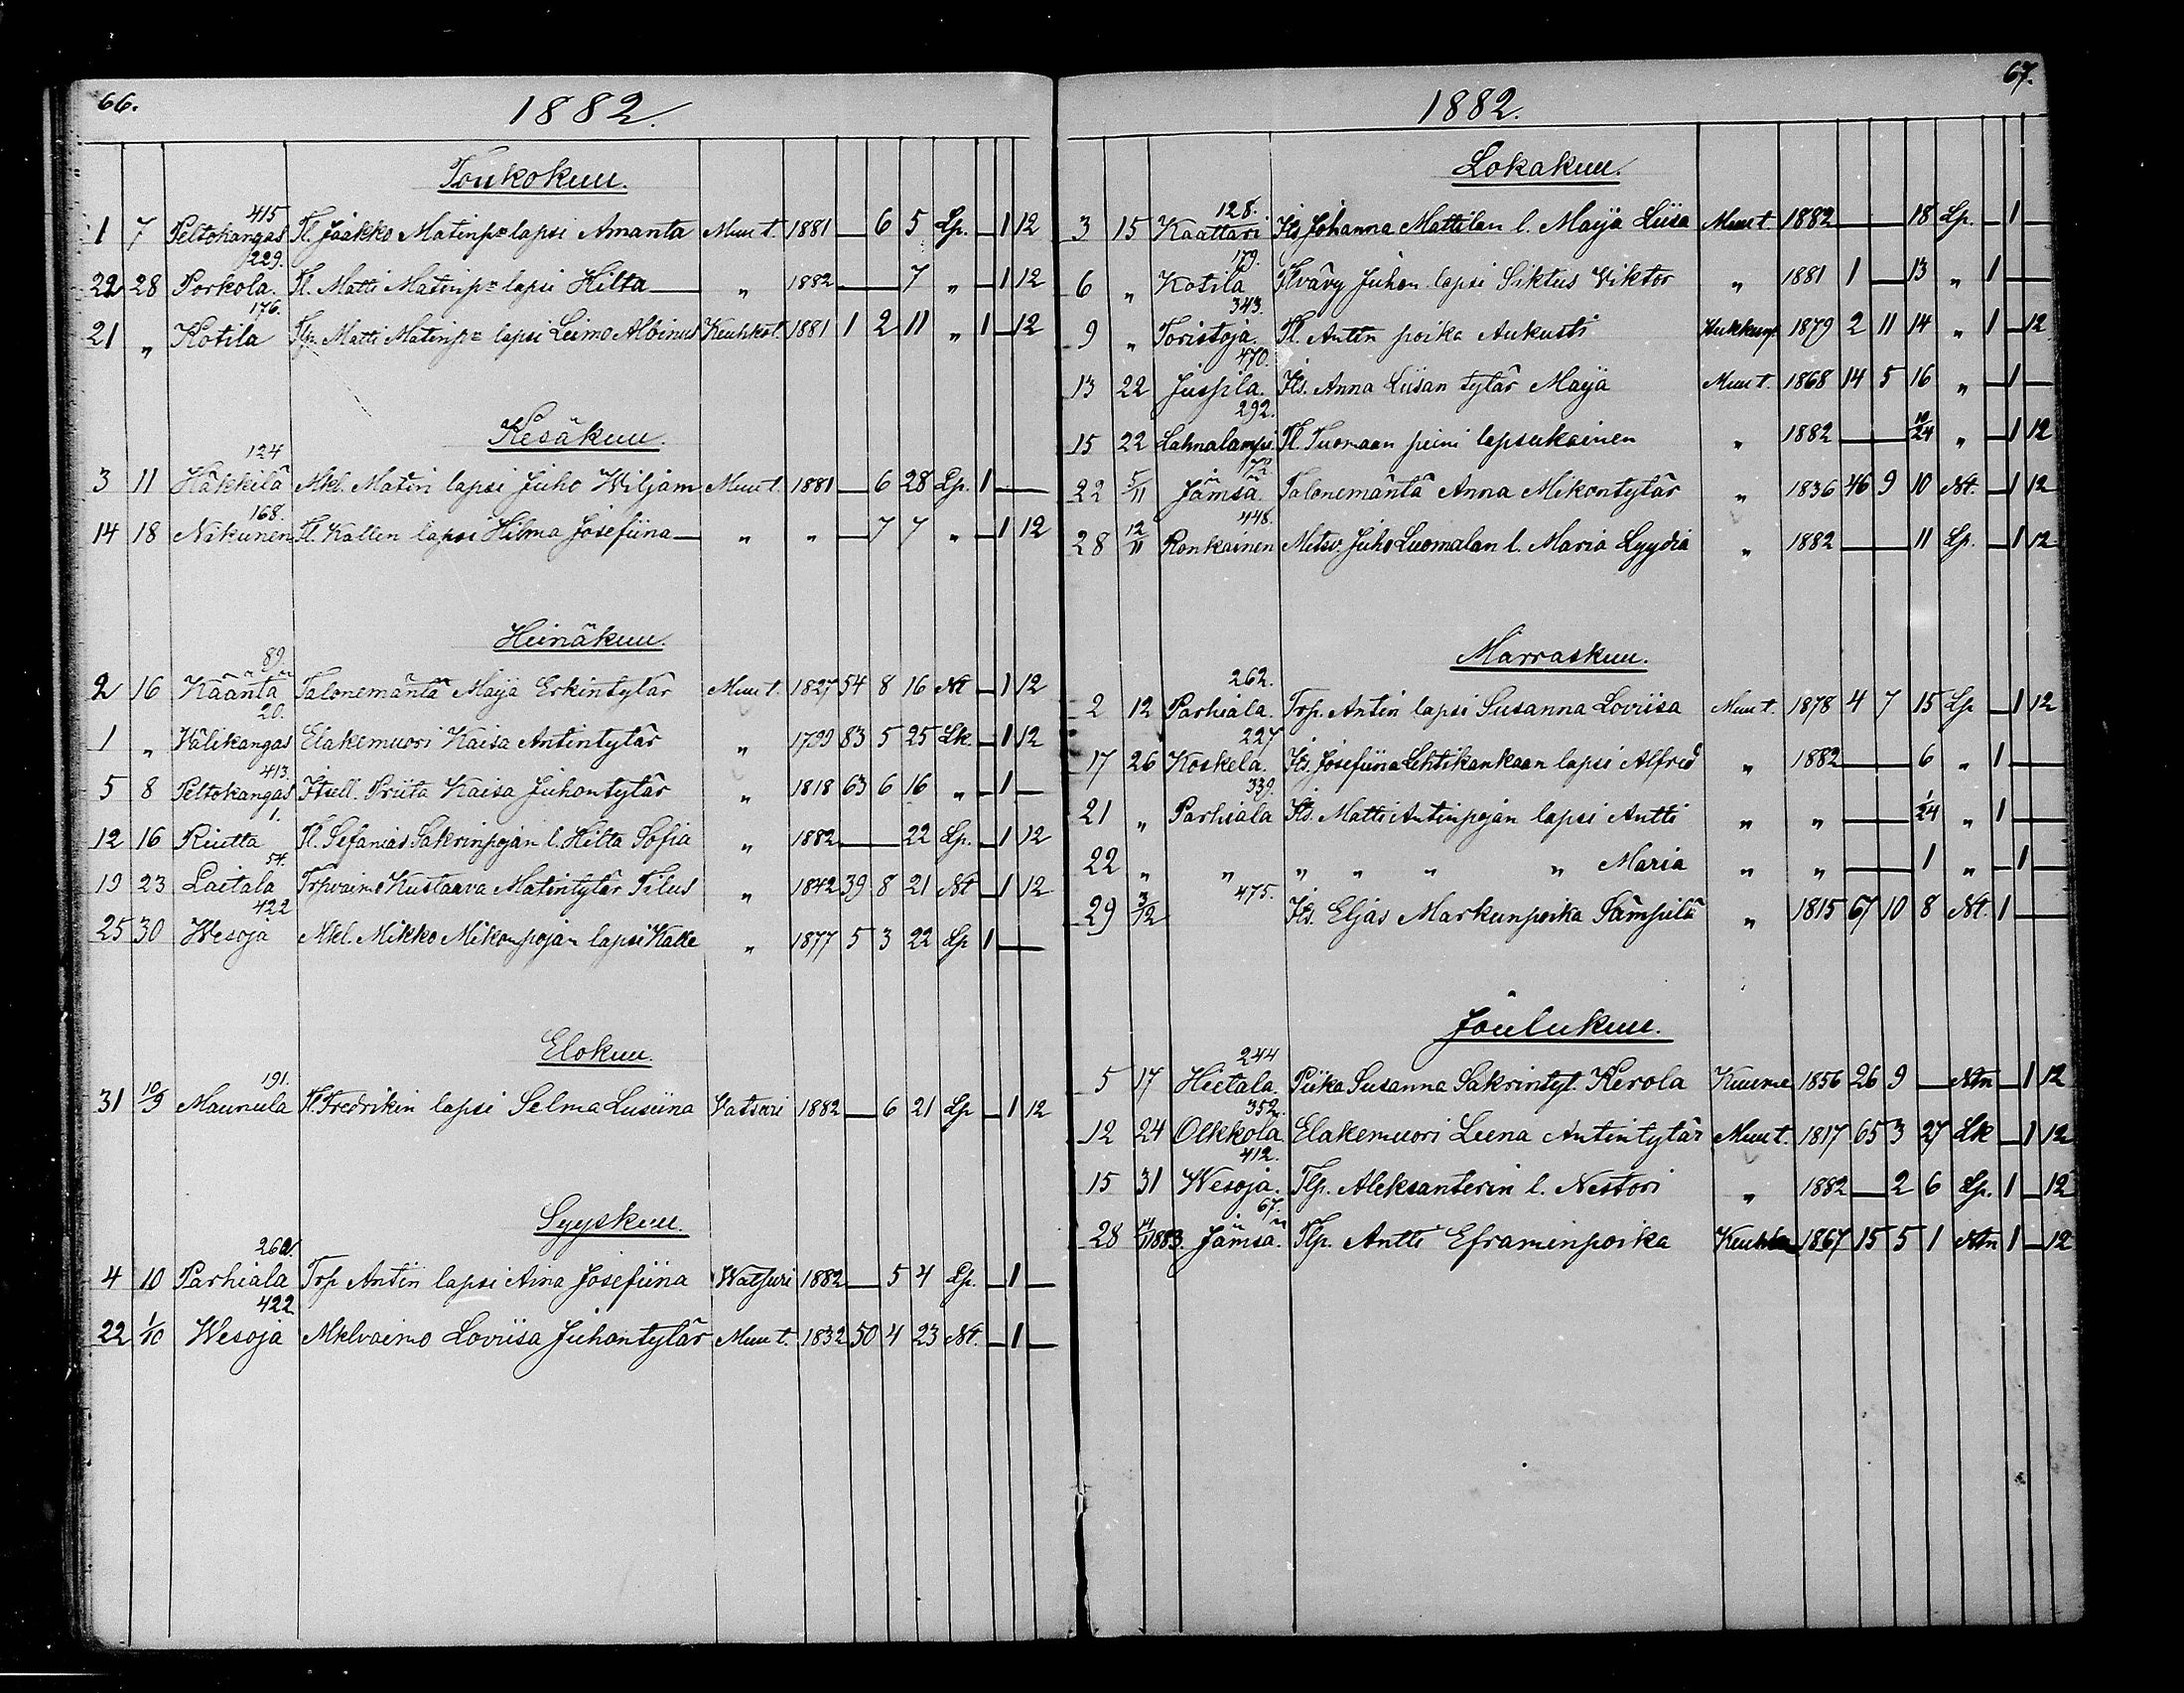 66.
1882.
Toukokuu.
415
1 7 Peltokangas Tl. Jaakko Matinp= lapsi Amanta Muu t. 1881 — 6 5 Lp. — 1 12
229.
22 28 Porkola. Tl. Matti Matinp= lapsi Hilta — „ 1882 — 7 „ — 1 12
176.
21 „ Kotila Tlp. Matti Matinp= lapsi Leimo Albinus Keuhkot. 1881 1 2 11 „ 1 — 12
Kesäkuu.
124
3 11 Häkkilä Mkl. Matin lapsi Juho Wiljam Muu t. 1881 — 6 28 Lp. 1 —
168.
14 18 Nikunen Tl. Kallen lapsi Hilma Josefiina — „ „ — 7 7 „ — 1 12
Heinäkuu.
89.
2 16 Kääntä Talonemäntä Maija Erkintytär Muu t. 1827 54 8 16 Nt — 1 12
20.
1 „ Välikangas Eläkemuori Kaisa Antintytär „ 1799 83 5 25 Lk. — 1 12
413.
5 8 Peltokangas Itsell. Priita Kaisa Juhontytär „ 1818 63 6 16 „ — 1 —
1.
12 16 Riutta Tl. Sefanias Sakrinpojan l. Hilta Sofia „ 1882 — 22 Lp. — 1 12
54.
19 23 Laitala Trpvaimo Kustaava Matintytär Tilus „ 1842 39 8 21 Nt — 1 12
422
25 30 Wesoja Mkl. Mikko Mikonpojan lapsi Kalle „ 1877 5 3 22 Lp 1 —
Elokuu.
191.
31 10/9 Maunula Tl. Fredrikin lapsi Selma Lusiina Vatsuri 1882 — 6 21 Lp — 1 12
Syyskuu.
262.
4 10 Parhiala Trp Antin lapsi Aina Josefiina Watsuri 1882 — 5 4 Lp. — 1 —
422
22 1/10 Wesoja Mklvaimo Loviisa Juhontytär Muu t. 1832 50 4 23 Nt. — 1 —
67.
1882.
Lokakuu.
128.
3 15 Kaattari Its Johanna Mattilan l. Maija Liisa Muu t. 1882 — 18 Lp. — 1
179.
6 „ Kotila Tlvävy Juhon lapsi Siktus Viktor „ 1881 1 — 13 „ 1 —
343.
9 „ Toristoja. Tl. Antin poika Aukusti 1879 2 11 14 „ 1 — 12
470.
13 22 Juspila. Its. Anna Liisan tytär Maija Muu t. 1868 14 5 16 „ — 1 —
292.
15 22 Lahnalampi. Tl. Tuomaan pieni lapsukainen „ 1882 — 10/24 „ — 1 12
72.
22 5/11 Jämsä. Talonemäntä Anna Mikontytär „ 1836 46 9 10 Nt. — 1 12
448.
28 12/11 Ronkainen Metsv. Juho Luomalan l. Maria Lyydia „ 1882 — 11 Lp. — 1 12
Marraskuu.
262.
2 12 Parhiala. Trp. Antin lapsi Susanna Loviisa Muu t. 1878 4 7 15 Lp — 1 12
227
17 26 Koskela. Its. Josefiina Lehtikankaan lapsi Alfred „ 1882 — 6 „ 1 —
339.
21 „ Parhiala Its. Matti Antinpojan lapsi Antti „ „ — 1/24 „ 1 —
22 „ „ „ „ „ „ Maria „ „ — 1 „ — 1 —
475.
29 3/12 Its. Eljas Markunpoika Sämpilä „ 1815 67 10 8 Nt. 1 —
Joulukuu.
244
5 17 Hietala. Piika Susanna Sakrintyt. Kerola Kuume 1856 26 9 — Ntn — 1 12
352.
12 24 Olkkola Eläkemuori Leena Antintytär Muu t. 1817 65 3 27 Lk — 1 12
412.
15 31 Wesoja. Tlp. Aleksanterin l. Nestori „ 1882 — 2 6 Lp. 1 — 12
67.
28 14/1 1883. Jämsä. Tlp. Antti Eframinpoika 1867 15 5 1 Ntn 1 — 12